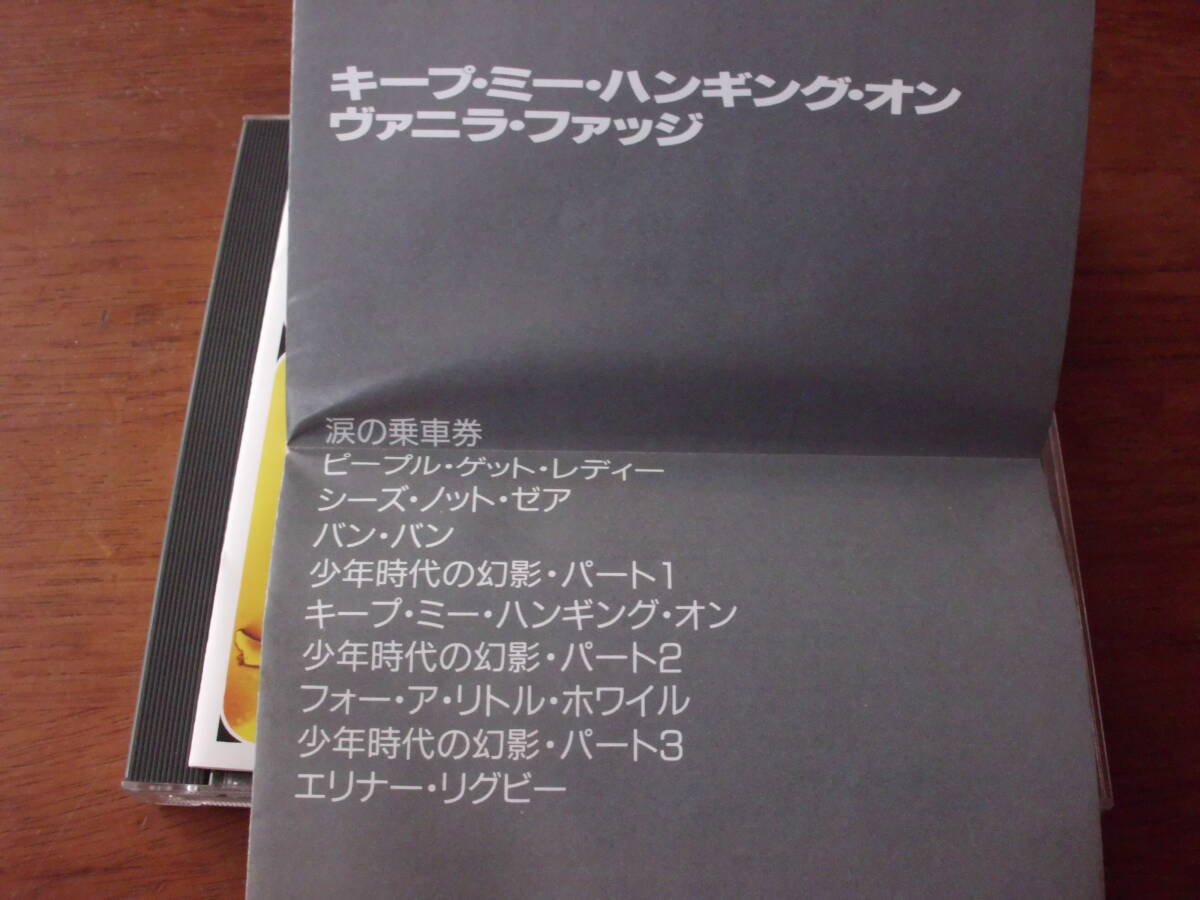 キープ・ミー・ハンギング・オン
ヴァニラ・ファッジ
涙の乗車券
ピープル・ゲット・レディー
シーズ・ノット・ゼア
バン・バン
少年時代の幻影・パート1
キープ・ミー・ハンギング・オン
少年時代の幻影・パート2
フォー・ア・リトル・ホワイル
少年時代の幻影・パート3
エリナー・リグビー